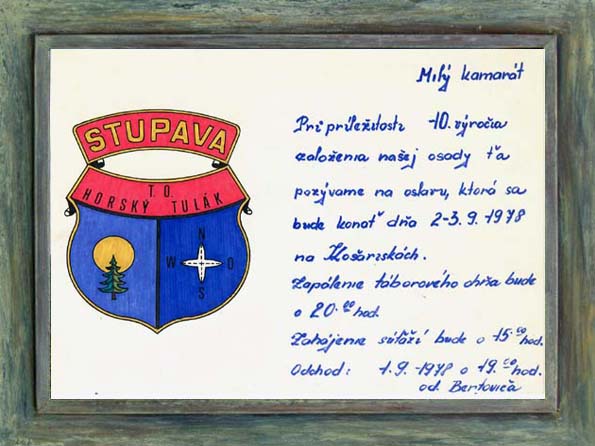 STUPAVA
T. O.
HORSKÝ TULÁK
N
W O
S
Milý kamarát
Pri príležitosti 10. výročia
založenia našej osady ťa
pozývame na oslavu, ktorá sa
bude konať dňa 2-3. 9. 1978
na Košariskách.
Zapálenie táborového ohňa bude
o 20.00 hod.
Zahájenie súťaží bude o 15.00 hod.
Odchod: 1. 9. -1978 o 19.00 hod.
od Bertoviča